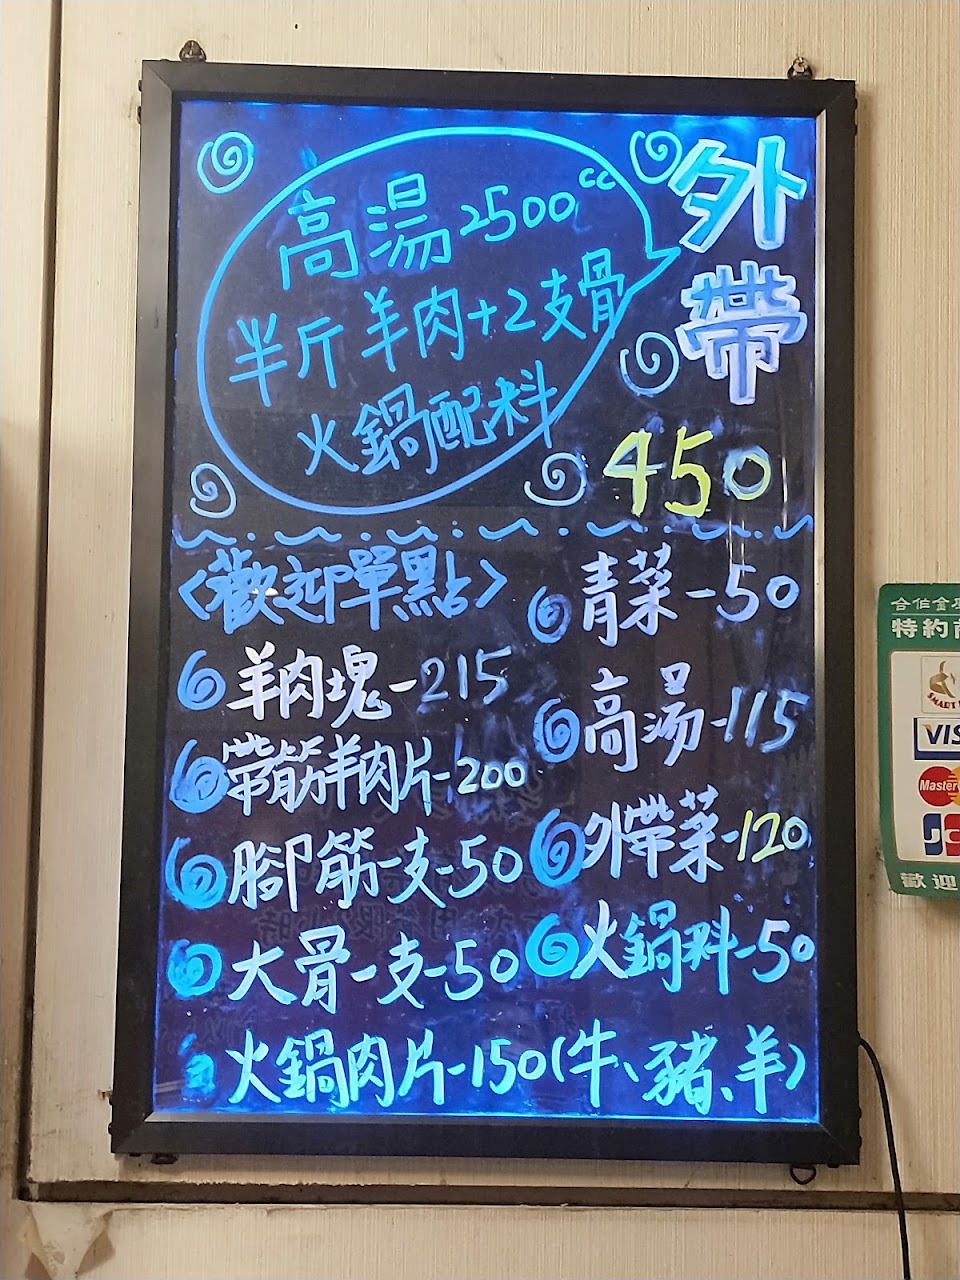 外帶
高湯2500cc
半斤羊肉+2支骨
火鍋配料
450
<歡迎單點>
羊肉塊-215
帶筋羊肉片-200
腳筋一支-50
大骨一支-50
火鍋肉片-150(牛、豬、羊)
青菜-50
高湯-115
外帶菜-120
火鍋料-50
特約
VIS
Master
歡迎